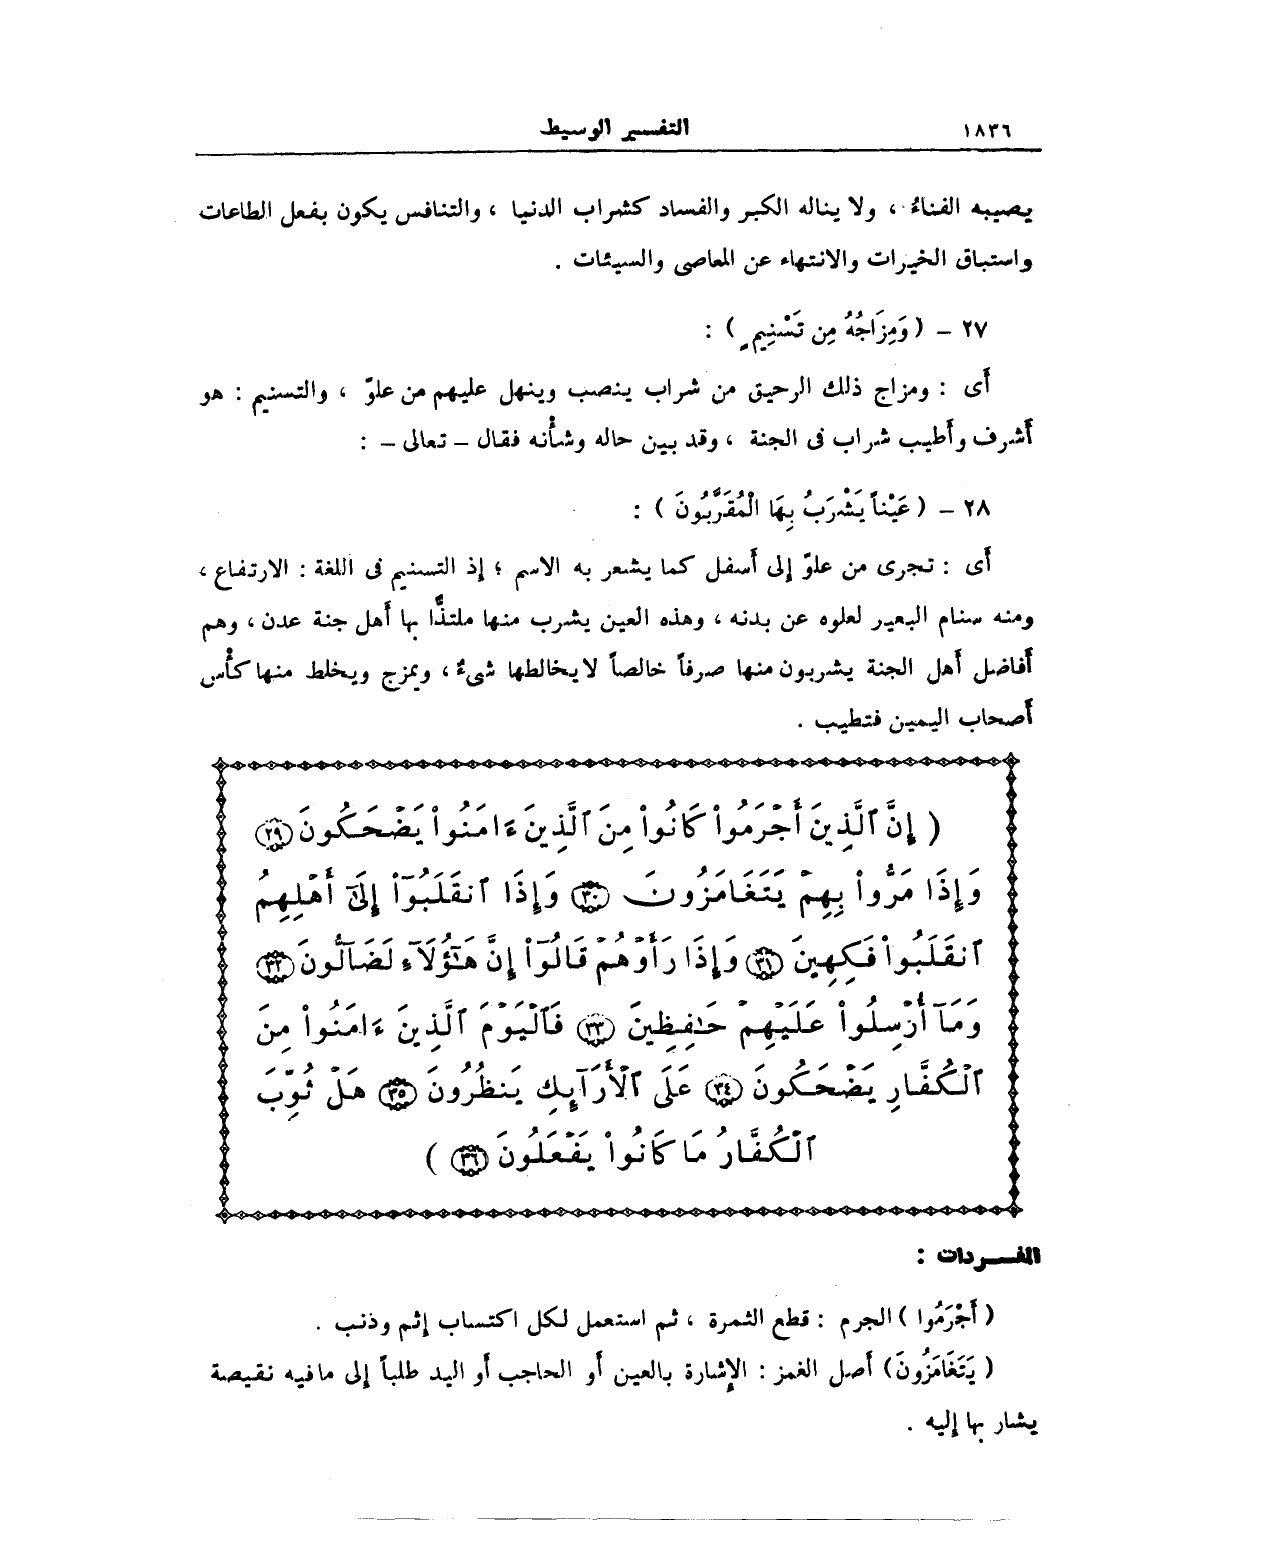 ١٨٣٦
التفسير الوسيط
يصيبه الفناءُ ، ولا يناله الكبر والفساد كشراب الدنيا ، والتنافس يكون بفعل الطاعات
واستباق الخيرات والانتهاء عن المعاصى والسيئات .
٢٧ – ( وَمِزَاجُهُ مِن تَسْنِيمٍ ) :
أَى : ومزاج ذلك الرحيق من شراب ينصب وينهل عليهم من علوّ ، والتسنيم : هو
أَشرف وأَطيب شراب فى الجنة ، وقد بين حاله وشأْنه فقال – تعالى – :
٢٨ – ( عَيْناً يَشْرَبُ بِهَا الْمُقَرَّبُونَ ) :
أَى : تجرى من علوّ إلى أَسفل كما يشعر به الاسم ؛ إذ التسنيم فى اللغة : الارتفاع ،
ومنه سنام البعير لعلوه عن بدنه ، وهذه العين يشرب منها ملتذًّا بها أَهل جنة عدن ، وهم
أَفاضل أَهل الجنة يشربون منها صرفاً خالصاً لا يخالطها شىءٌ ، ويمزج ويخلط منها كأْس
أَصحاب اليمين فتطيب .
( إِنَّ ٱلَّذِينَ أَجْرَمُوا۟ كَانُوا۟ مِنَ ٱلَّذِينَ ءَامَنُوا۟ يَضْحَكُونَ ٢٩
وَإِذَا مَرُّوا۟ بِهِمْ يَتَغَامَزُونَ ٣٠ وَإِذَا ٱنقَلَبُوٓا۟ إِلَىٰٓ أَهْلِهِمُ
ٱنقَلَبُوا۟ فَكِهِينَ ٣١ وَإِذَا رَأَوْهُمْ قَالُوٓا۟ إِنَّ هَٰٓؤُلَآءِ لَضَآلُّونَ ٣٢
وَمَآ أُرْسِلُوا۟ عَلَيْهِمْ حَٰفِظِينَ ٣٣ فَٱلْيَوْمَ ٱلَّذِينَ ءَامَنُوا۟ مِنَ
ٱلْكُفَّارِ يَضْحَكُونَ ٣٤ عَلَى ٱلْأَرَآئِكِ يَنظُرُونَ ٣٥ هَلْ ثُوِّبَ
ٱلْكُفَّارُ مَا كَانُوا۟ يَفْعَلُونَ ٣٦ )
المفـــردات :
( أَجْرَمُوا ) الجرم : قطع الثمرة ، ثم استعمل لكل اكتساب إثم وذنب .
( يَتَغَامَزُونَ ) أَصل الغمز : الإِشارة بالعين أَو الحاجب أَو اليد طلباً إلى ما فيه نقيصة
يشار بها إليه .